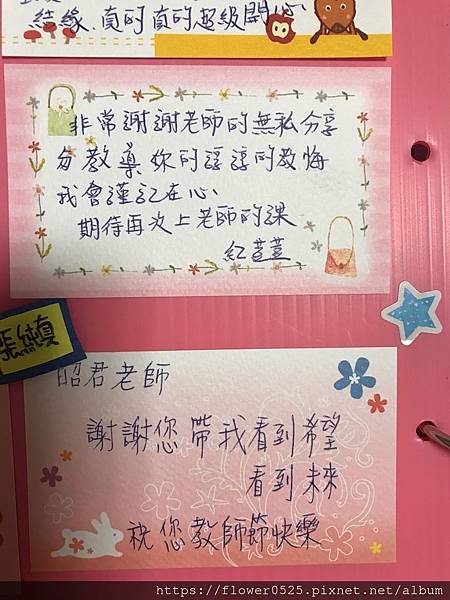 結緣,真的真的超級開心
非常謝謝老師的無私分享
分教導 您的諄諄的教悔
我會謹記在心、
期待再次上老師的課
紅荳薏
張純真
昭君老師
謝謝您帶我看到希望
看到未來
祝您教師節快樂
https://flower0525.pixnet.net/album